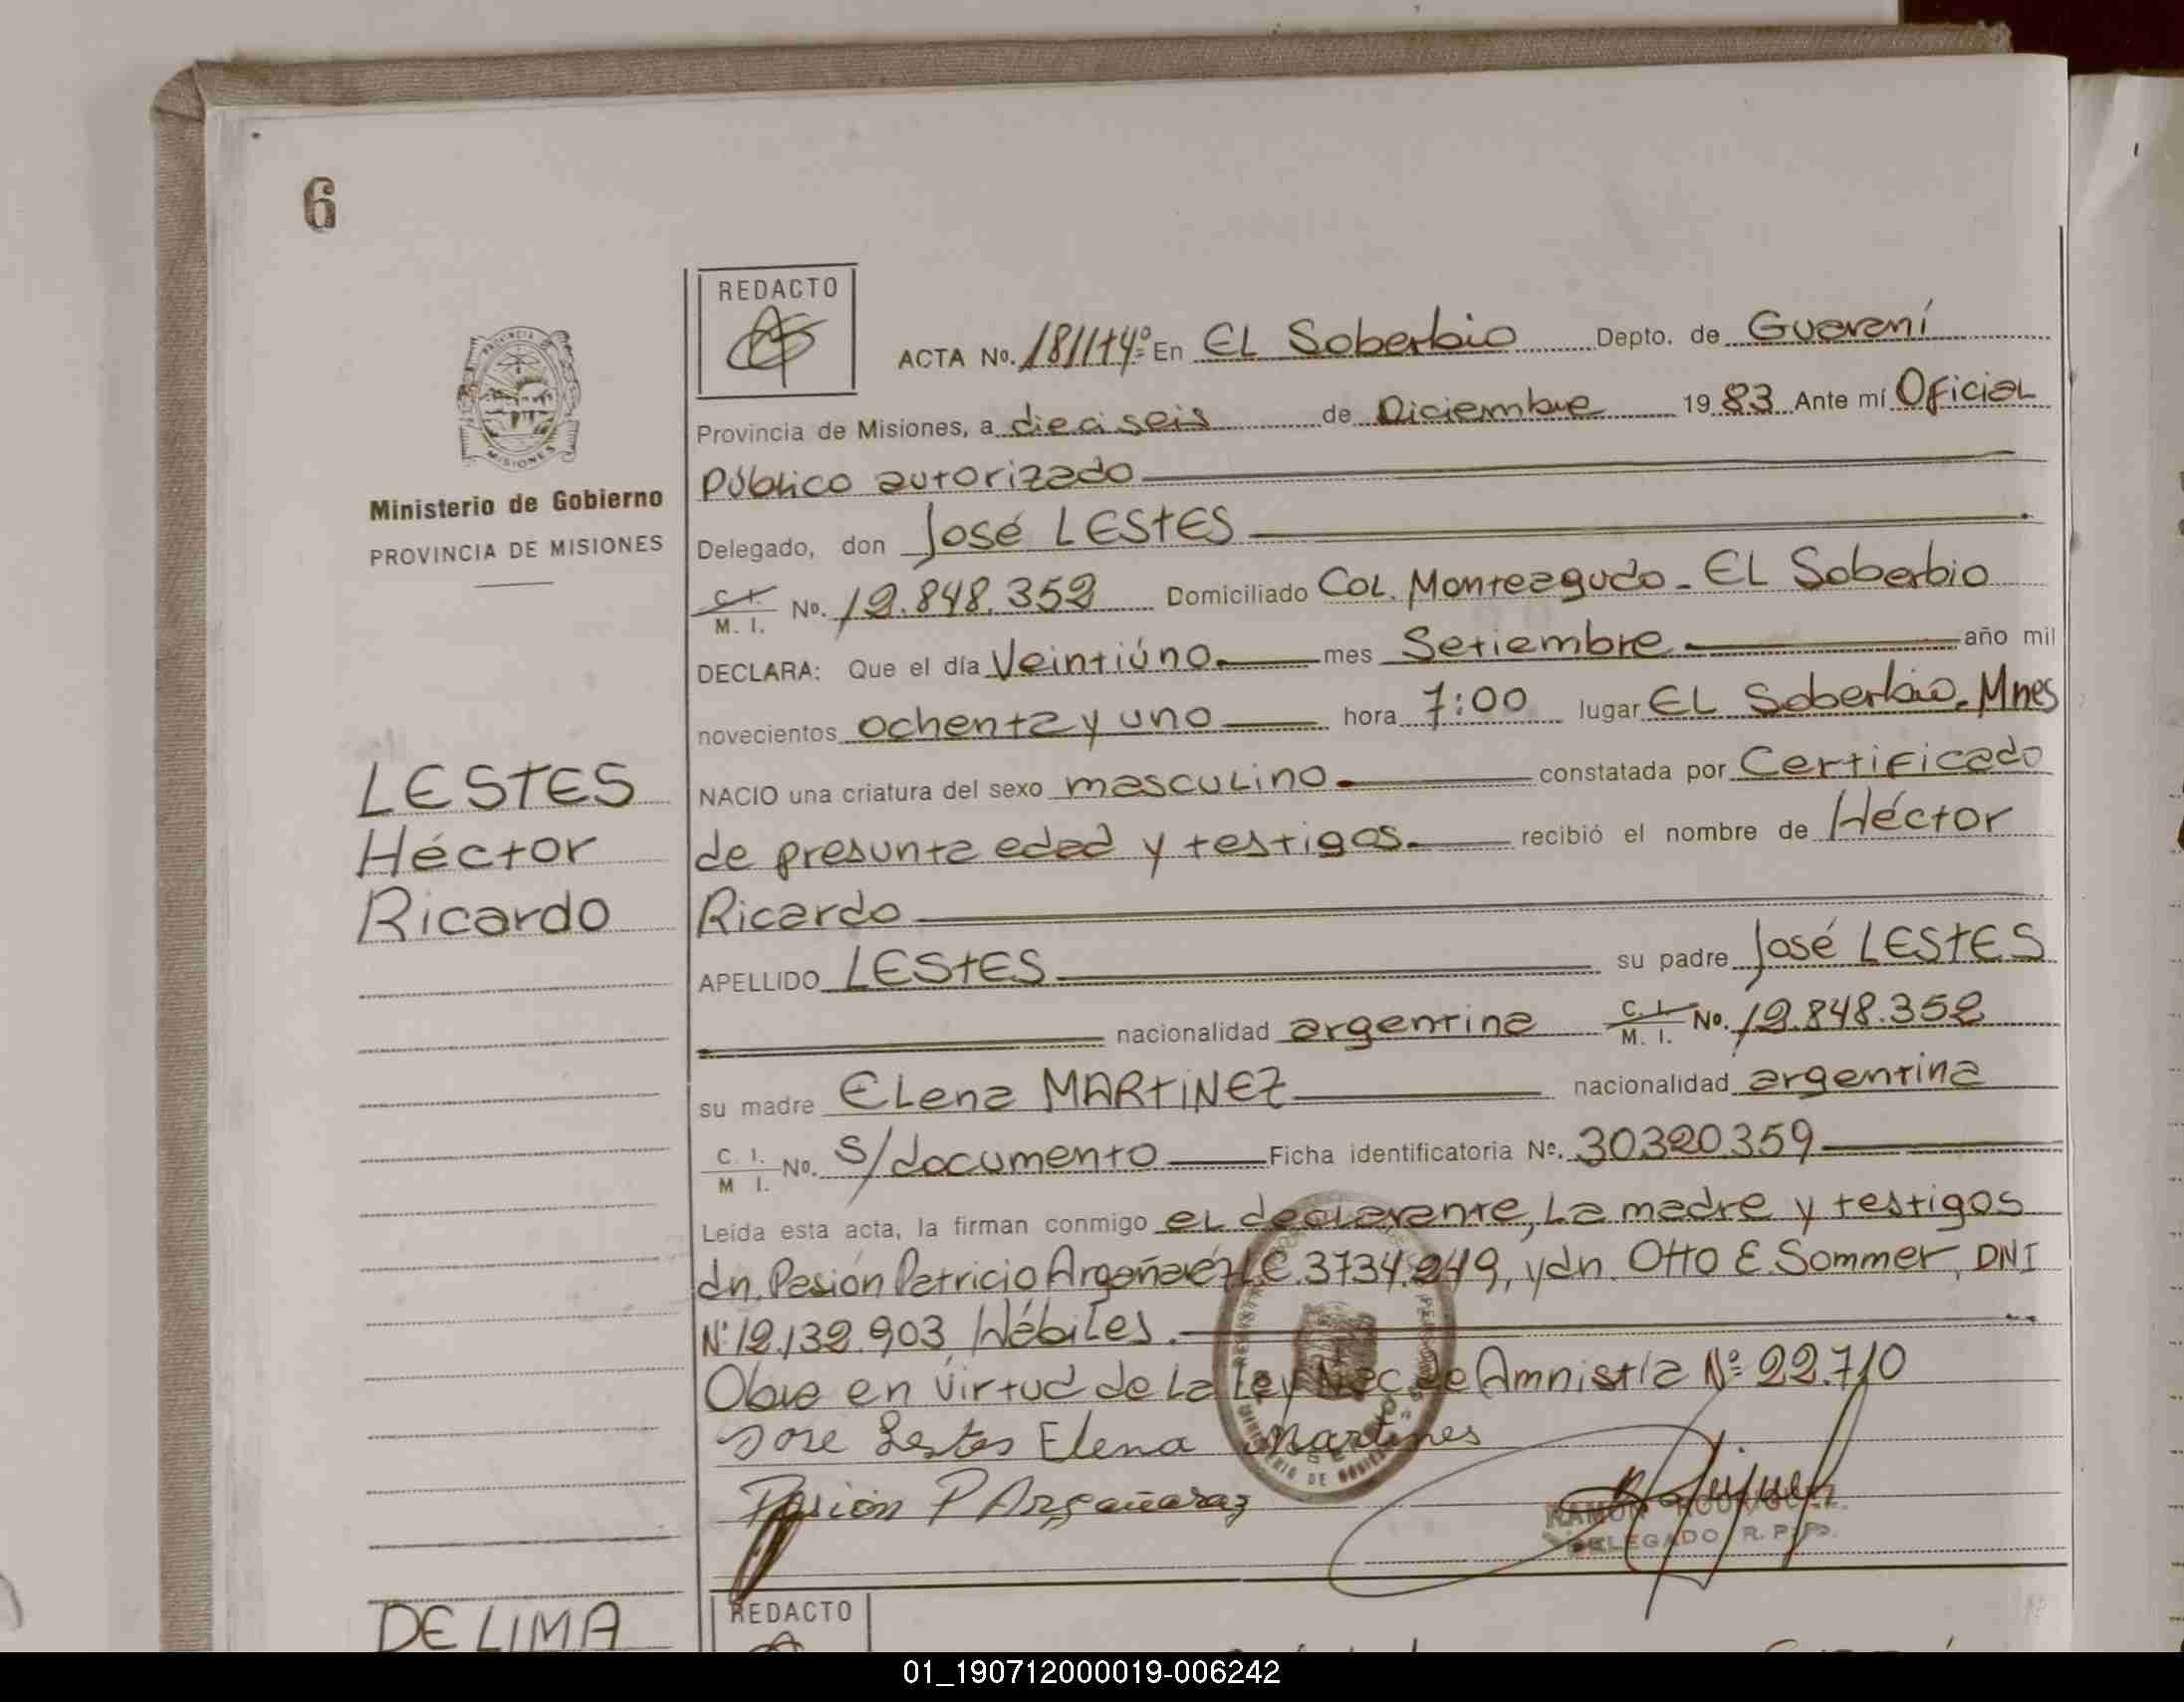 6
REDACTO
ACTA No. 181 T4º En EL Soberbio Depto. de Guaraní
Provincia de Misiones, a dieciseis de Diciembre 1983 Ante mí Oficial
Público autorizado
Delegado, don José LESTES
C. I. / M. I. No. 12.848.352 Domiciliado Col. Monteagudo - EL Soberbio
DECLARA: Que el día Veintiúno mes Setiembre año mil
novecientos ochenta y uno hora 7:00 lugar EL Soberbio. Mnes
NACIO una criatura del sexo masculino constatada por Certificado
de presunta edad y testigos. recibió el nombre de Héctor
Ricardo
APELLIDO LESTES su padre José LESTES
nacionalidad argentina C. I. / M. I. No. 12.848.352
su madre Elena MARTINEZ nacionalidad argentina
C. I. / M I. No. S/documento Ficha identificatoria Nº. 30320359
Leída esta acta, la firman conmigo el declarante, La madre y testigos
dn. Pasión Patricio LE. 3734.249, y dn. Otto E. Sommer, DNI
Nº 12.132.903, Hábiles.
Obra en virtud de La Ley Nac de Amnistía Nº 22.710
Jose Lestes Elena Martines
Pasión P Argañaraz
RAMON RODRIGUEZ
DELEGADO R. P. P.
PROVINCIA
MISIONES
Ministerio de Gobierno
PROVINCIA DE MISIONES
LESTES
Héctor
Ricardo
DE LIMA
REDACTO
01_190712000019-006242